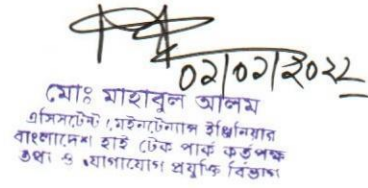 ০২/০২/২০২২
মোঃ মাহাবুল আলম
এসিসটেন্ট মেইনটেন্যান্স ইঞ্জিনিয়ার
বাংলাদেশ হাই টেক পার্ক কর্তৃপক্ষ
তথ্য ও যোগাযোগ প্রযুক্তি বিভাগ